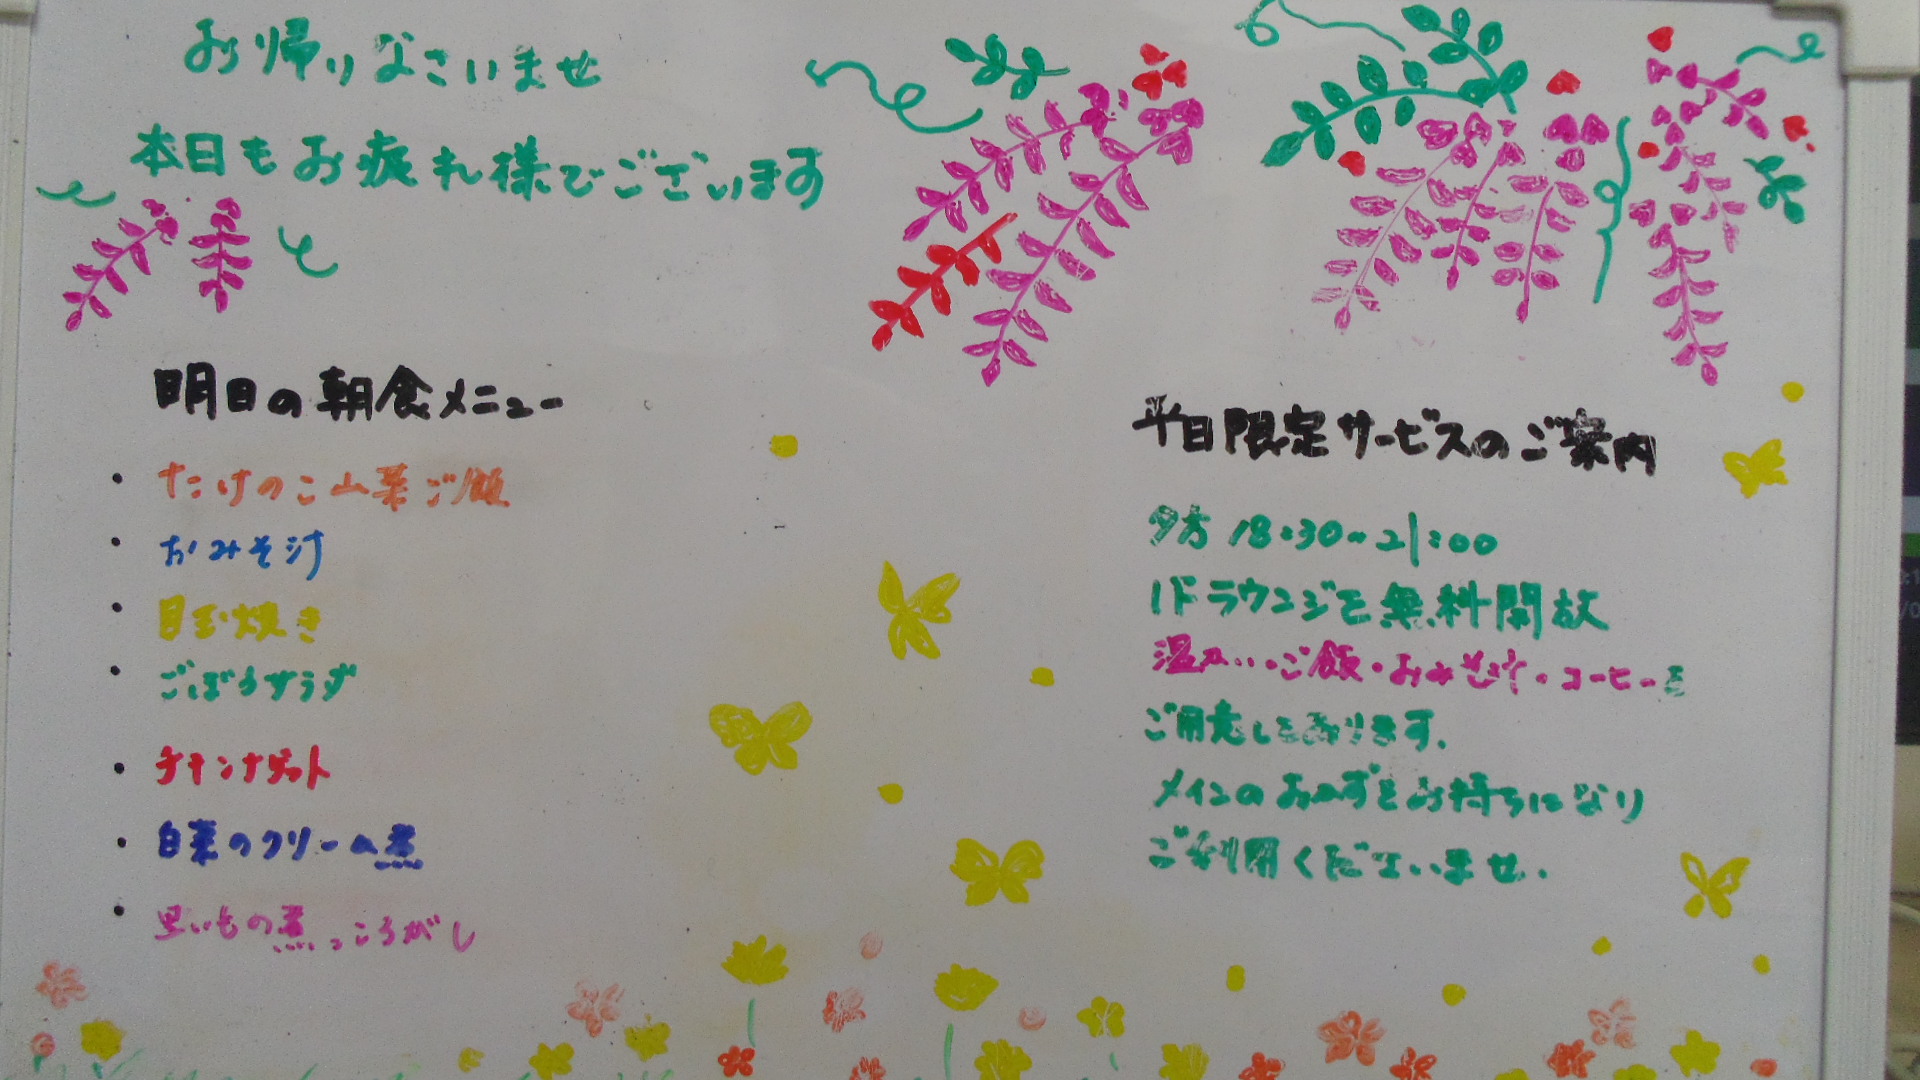 お帰りなさいませ
本日もお疲れ様でございます
明日の朝食メニュー
・たけのこ山菜ご飯
・おみそ汁
・目玉焼き
・ごぼうサラダ
・チキンナゲット
・白菜のクリーム煮
・里いもの煮っころがし
平日限定サービスのご案内
夕方 18:30~21:00
1Fラウンジを無料開放
温かいご飯・おみそ汁・コーヒーを
ご用意しております。
メインのおかずをお持ちになり
ご利用くださいませ.